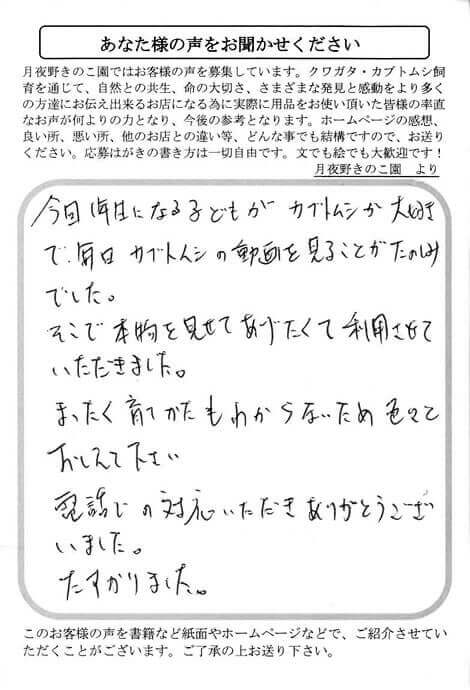 あなた様の声をお聞かせください
月夜野きのこ園ではお客様の声を募集しています。クワガタ・カブトムシ飼
育を通じて、自然との共生、命の大切さ、さまざまな発見と感動をより多く
の方達にお伝え出来るお店になる為に実際に用品をお使い頂いた皆様の率直
なお声が何よりの力となり、今後の参考となります。ホームページの感想、
良い所、悪い所、他のお店との違い等、どんな事でも結構ですので、お送り
ください。応募はがきの書き方は一切自由です。文でも絵でも大歓迎です！
月夜野きのこ園　より
今回 になる子どもが カブトムシが 大好き
で、毎日 カブトムシの動画を見ることがたのしみ
でした。
そこで 本物を見せてあげたくて利用させて
いただきました。
まったく育てかたもわからないため色々と
おしえて下さい
電話での対応いただきありがとうござ
いました。
たすかりました。
このお客様の声を書籍など紙面やホームページなどで、ご紹介させてい
ただくことがございます。ご了承の上お送り下さい。